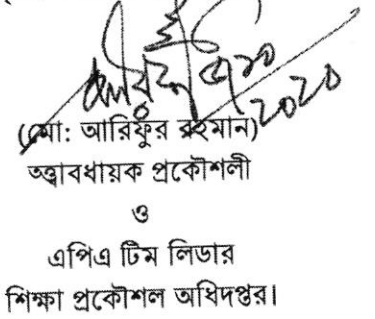 ২০২০
(মো: আরিফুর রহমান)
তত্ত্বাবধায়ক প্রকৌশলী
ও
এপিএ টিম লিডার
শিক্ষা প্রকৌশল অধিদপ্তর।